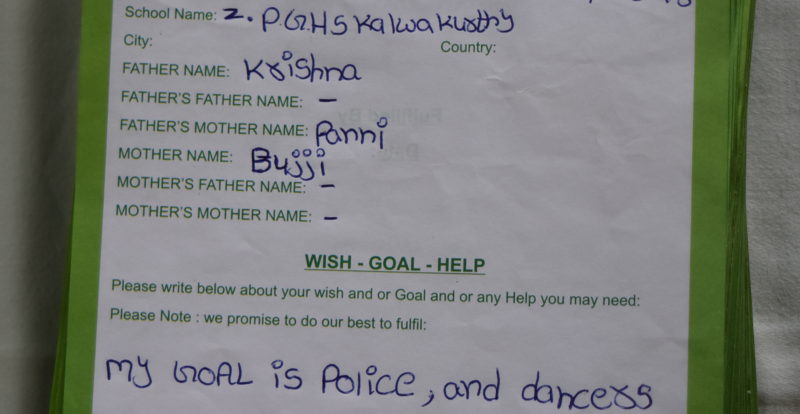 School Name: Z. PGHS Kalwakurthy
City: Country:
FATHER NAME: Krishna
FATHER'S FATHER NAME: –
FATHER'S MOTHER NAME: Panni
MOTHER NAME: Bujji
MOTHER'S FATHER NAME: –
MOTHER'S MOTHER NAME: –
WISH - GOAL - HELP
Please write below about your wish and or Goal and or any Help you may need:
Please Note : we promise to do our best to fulfil:
my GOAL is Police, and dancers